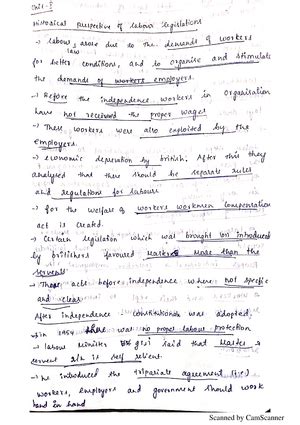 Unit-I
Historical perspective of labour legislations
→ labour law arose due to the demands of workers
for better conditions, and to organise and stimulate
the demands of workers employers.
→ Before the independence, workers in Organisation
have not received the proper wages
→ These workers were also exploited by the
employers.
→ economic depression by british. After this they
analysed that there should be separate rules
and regulations for labours
→ for the welfare of workers workmen compensation
act is created.
→ Certain legislation which was brought on introduced
by britishers favoured masters more than the
servents
→ These acts before independence where not specific
and clear
→ After independence constitution was adopted,
in 195 there was no proper labour protection
→ labour minister giri said that Master &
servent r/n is self relient.
→ He introduced the tripartate agreement (i.e.)
workers, employers and government should work
hand in hand
Scanned by CamScanner